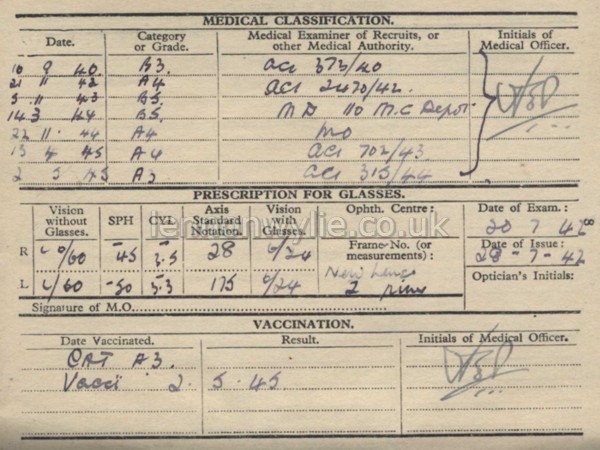 MEDICAL CLASSIFICATION.
Date. Category or Grade. Medical Examiner of Recruits, or other Medical Authority. Initials of Medical Officer.
10 9 40. B3. ACI 372/40
21 " 42 A4 ACI 2470/42.
5 " 43 B5.
14 3 44 B5. MD 110 M.C Depot.
22 11. 44 A4 MO
13 4 45 A4 ACI 702/43
2 5 45 A3 ACI 315/44
PRESCRIPTION FOR GLASSES.
Vision without Glasses. SPH CYL Axis Standard Notation. Vision with Glasses. Ophth. Centre: Date of Exam:
20 7 42
R /60 -45 28 6/24 Frame No. (or measurements): Date of Issue:
28-7-42
L /60 175 6/24 New Lens Optician's Initials:
2
Signature of M.O.
lennonwylie.co.uk
VACCINATION.
Date Vaccinated. Result. Initials of Medical Officer.
CAT A3.
Vacci 2. 5. 45